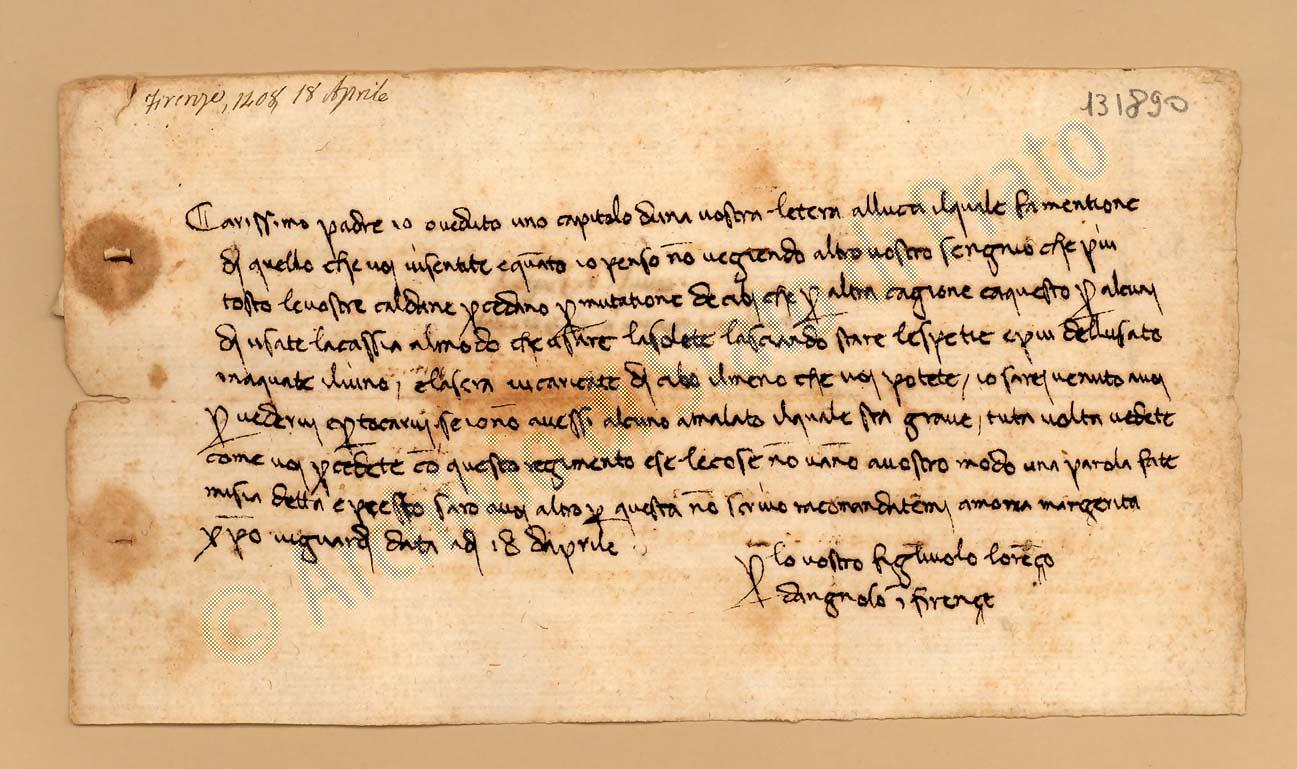 Firenze, 1408 18 Aprile
131890
Carissimo padre io o veduto uno capitolo duna vostra letera alluca ilquale fa mentione
di quello che voi visentite equāto io penso nō vegiendo altro vostro sengnio che piu
tosto levostre caldane pcedano p mutatione de cibi che p altra cagione eaquesto p alcuni
di usate lacassia almodo che usare lasolete lasciando stare lespetie epiu dellusato
inaquate iluino, elasera vi caricate di cibo ilmeno che voi potete, io sarei venuto avoi
p vedervi eptocarvi seionō avessi alcuno amalato ilquale sta grave, tuta volta vedete
come voi pcedete cō questo regimento ese lecose nō vāno avostro modo una parola fate
misia detta e presto saro avoi altro p questa nō scrivo racomandatemi amona margerita
xpō viguardi data adi 18 daprile
p lo vostro figliuolo lorēço
dangnolo ī firençe
© Archivio di Stato di Prato